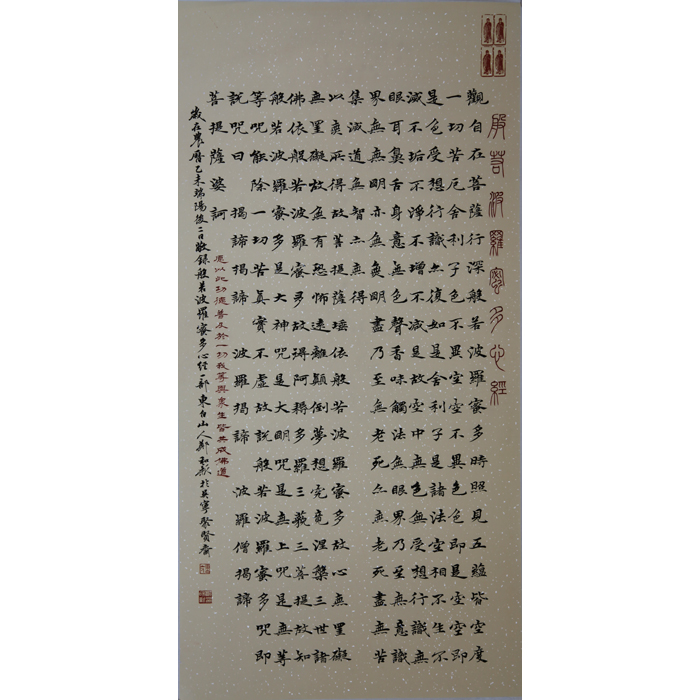 般若波羅蜜多心經
觀自在菩薩行深般若波羅蜜多時照見五蘊皆空度
一切苦厄舍利子色不異空空不異色色即是空空即
是色受想行識亦復如是舍利子是諸法空相不生不
滅不垢不淨不增不減是故空中無色無受想行識無
眼耳鼻舌身意無色聲香味觸法無眼界乃至無意識
界無無明亦無無明盡乃至無老死亦無老死盡無苦
集滅道無智亦無得
以無所得故菩提薩埵依般若波羅蜜多故心無罣礙
無罣礙故無有恐怖遠離顛倒夢想究竟涅槃三世諸
佛依般若波羅蜜多故得阿耨多羅三藐三菩提故知
般若波羅蜜多是大神咒是大明咒是無上咒是無等
等咒能除一切苦真實不虛故說般若波羅蜜多咒即
說咒曰 揭諦揭諦 波羅揭諦 波羅僧揭諦
菩提薩婆訶
願以此功德普及於一切我等與眾生皆共成佛道
歲在農曆乙未端陽後二日敬錄般若波羅蜜多心經一部東白山人鄭於吳寧聚賢齋